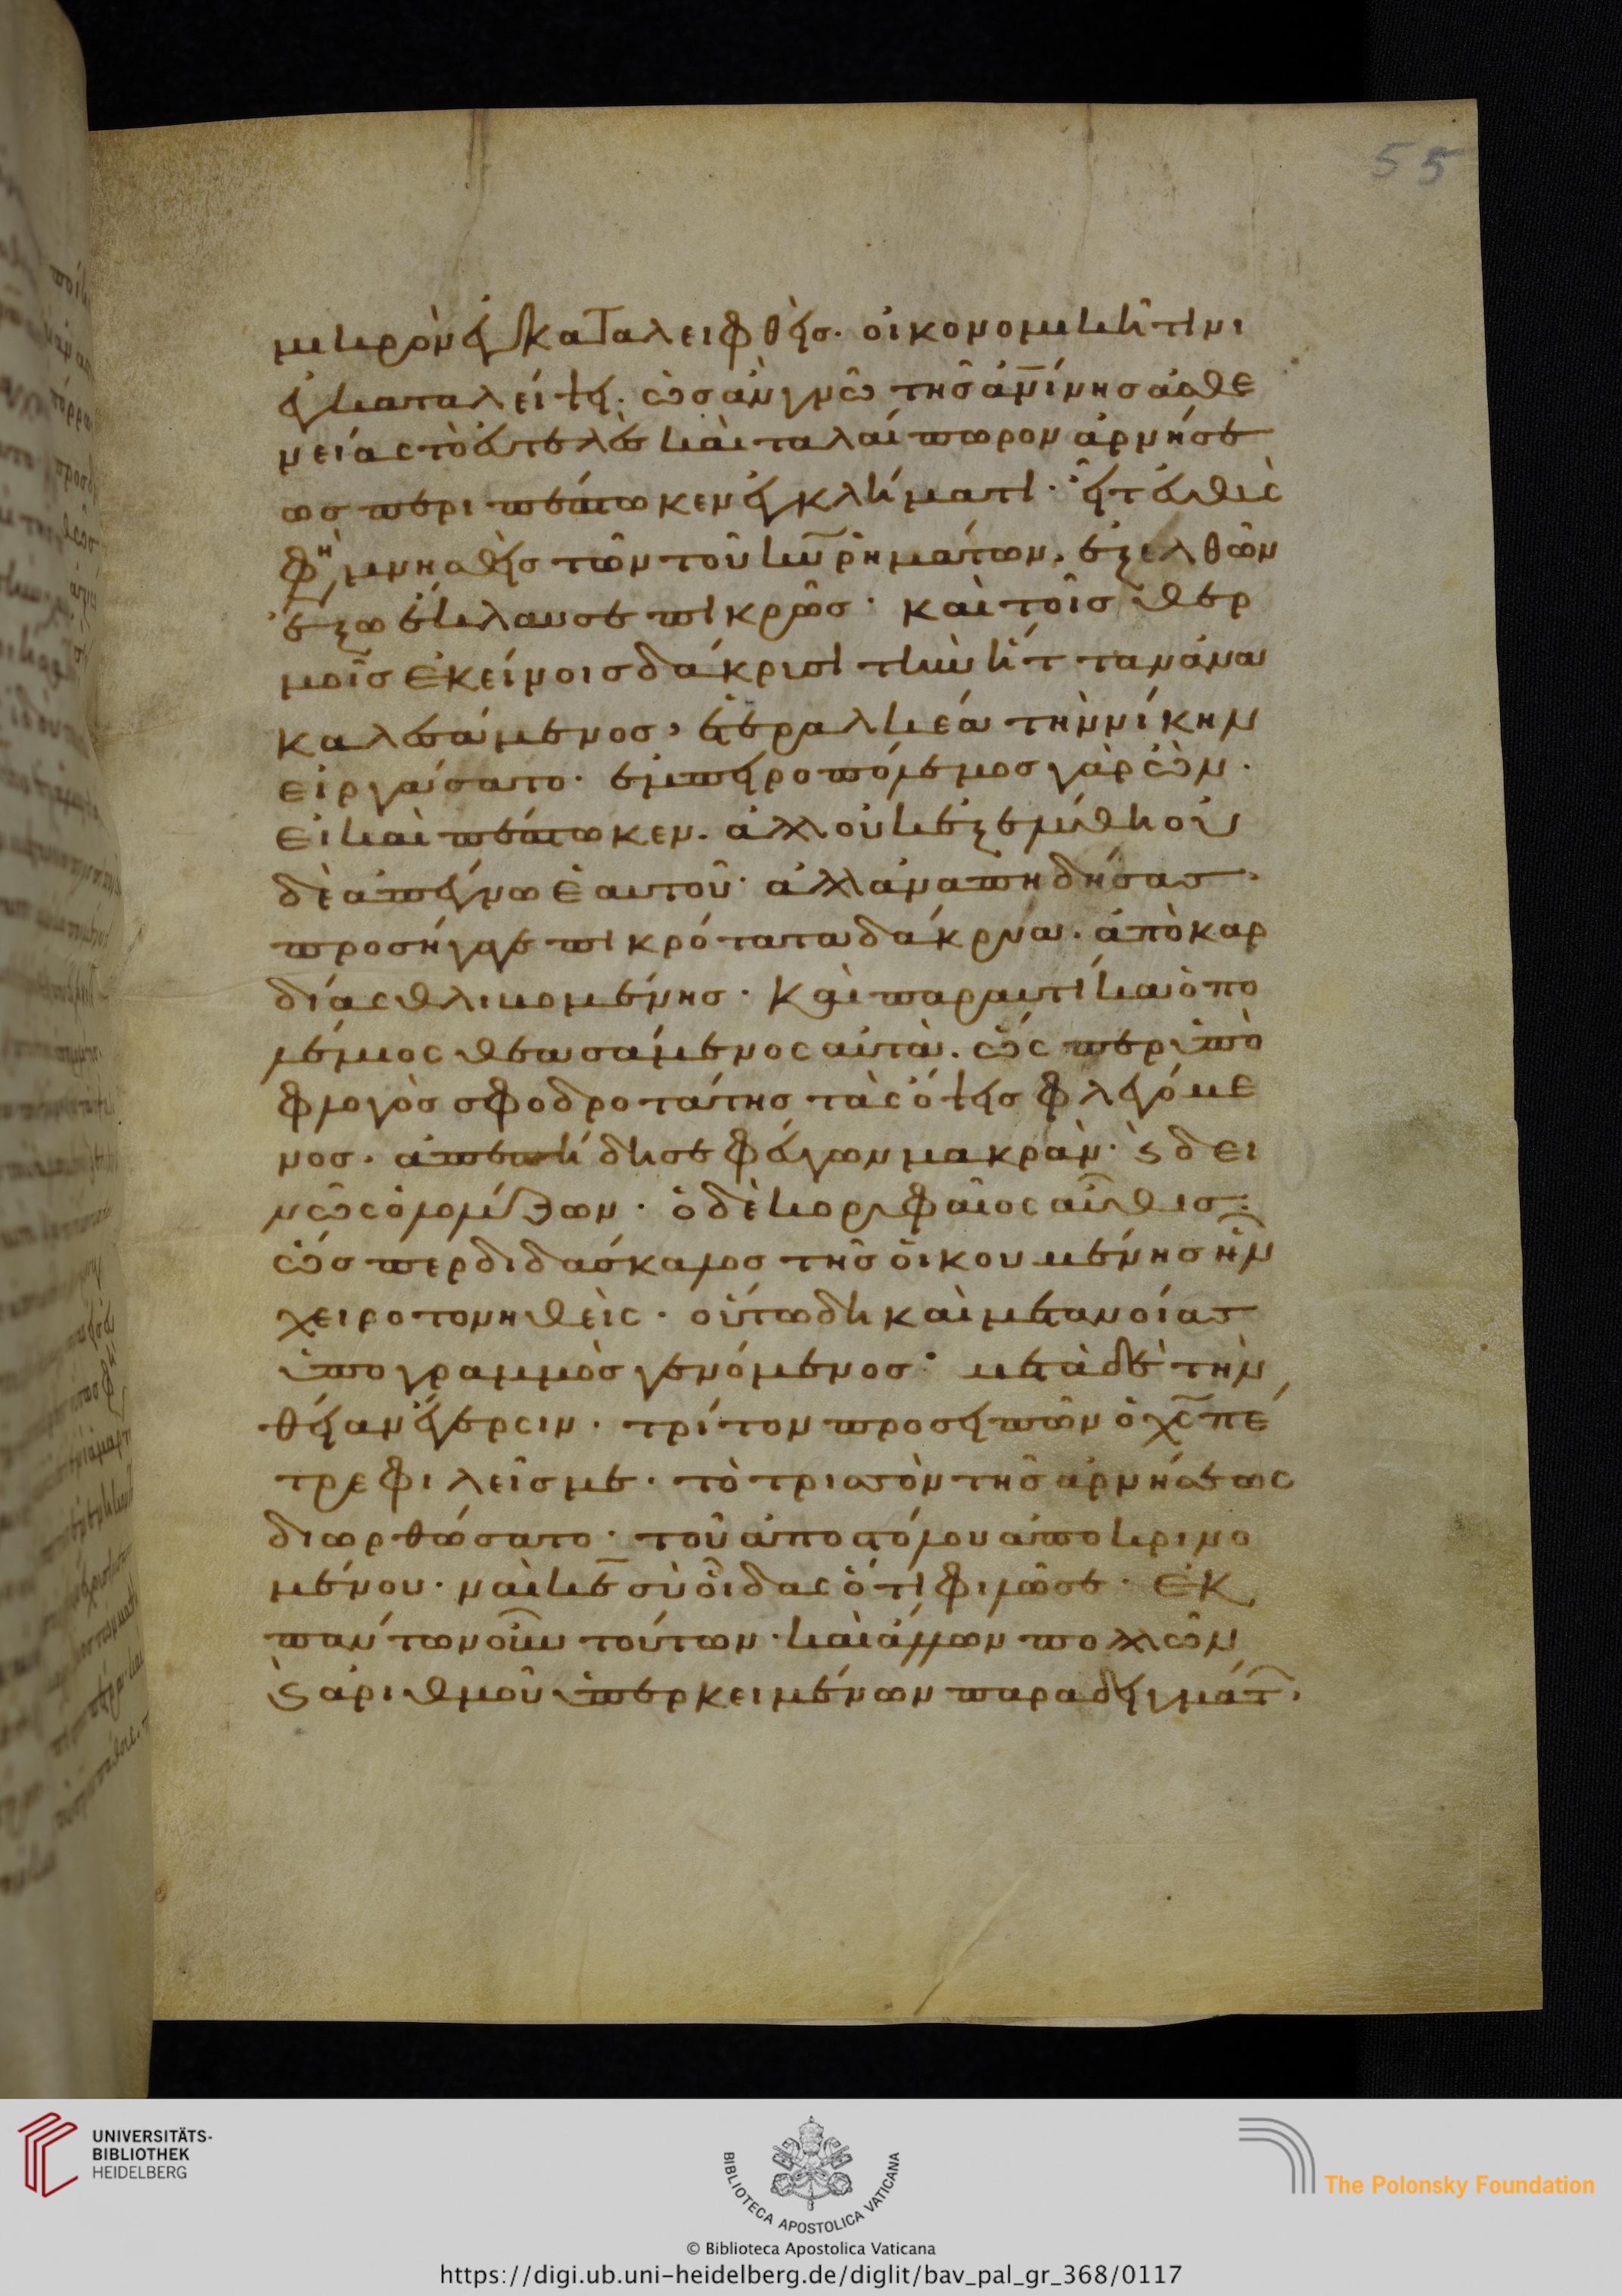 55
μικρὸν ἐγκαταλειφθεὶς. οἰκονομικῆ τινι
ἐγκαταλείψει. ὡς ἂν γνῶ τῆς ἀνίνης ἀσθε
νείας τὸ ἀτελὲς καὶ ταλαίπωρον ἀρνήσε
ως περιπέπτωκεν ἐγκλήματι. εἶτ αὖθις
φη μνησθεὶς τῶν τοῦ κυ ῥημάτων. ἐξελθὼν
ἔξω ἔκλαυσε πικρῶς. καὶ τοῖς θερ
μοῖς ἐκείνοις δάκρισι τὴν ἧτταν ἀνα
καλεσάμενος, ἑτεραλκέα τὴν νίκην
εἰργάσατο. ἐμπειροπόλεμος γὰρ ὢν.
εἰ καὶ πέπτωκεν. ἀλλ οὐκ ἐξελύθη οὐ
δὲ ἀπέγνω ἑαυτοῦ. ἀλλ ἀναπηδήσας.
προσήγαγε πικρότατα δάκρυα. ἀπὸ καρ
δίας θλιβομένης. καὶ παραυτίκα ὁ πο
λέμιος θεασάμενος αὐτὰ. ὥς περ ὑπὸ
φλογὸς σφοδροτάτης τὰς ὄψεις φλεγόμε
νος. ἀπεπήδησε φεύγων μακρὰν. ϛ δει
νῶς ὀλολύζων. ὁ δὲ κορυφαῖος αὖθις.
ὥς περ διδάσκαλος τῆς οἰκουμένης ἦν
χειροτονηθεὶς. οὕτω δὴ καὶ μετανοίας
ὑπογραμμὸς γενόμενος. μετὰ δὲ τὴν
θείαν ἔγερσιν. τρίτον προσειπὼν ὁ χς πέ
τρε φιλεῖς με. τὸ τρισσὸν τῆς ἀρνήσεως
διωρθώσατο. τοῦ ἀποστόλου ἀποκρινο
μένου. ναὶ κε σὺ οἶδας ὅτι φιλῶ σε. ἐκ
πάντων οὖν τούτων. καὶ ἄλλων πολλῶν
ϛ ἀριθμοῦ ὑπερκειμένων παραδειγμάτ.
UNIVERSITÄTS-
BIBLIOTHEK
HEIDELBERG
BIBLIOTECA APOSTOLICA VATICANA
The Polonsky Foundation
© Biblioteca Apostolica Vaticana
https://digi.ub.uni-heidelberg.de/diglit/bav_pal_gr_368/0117